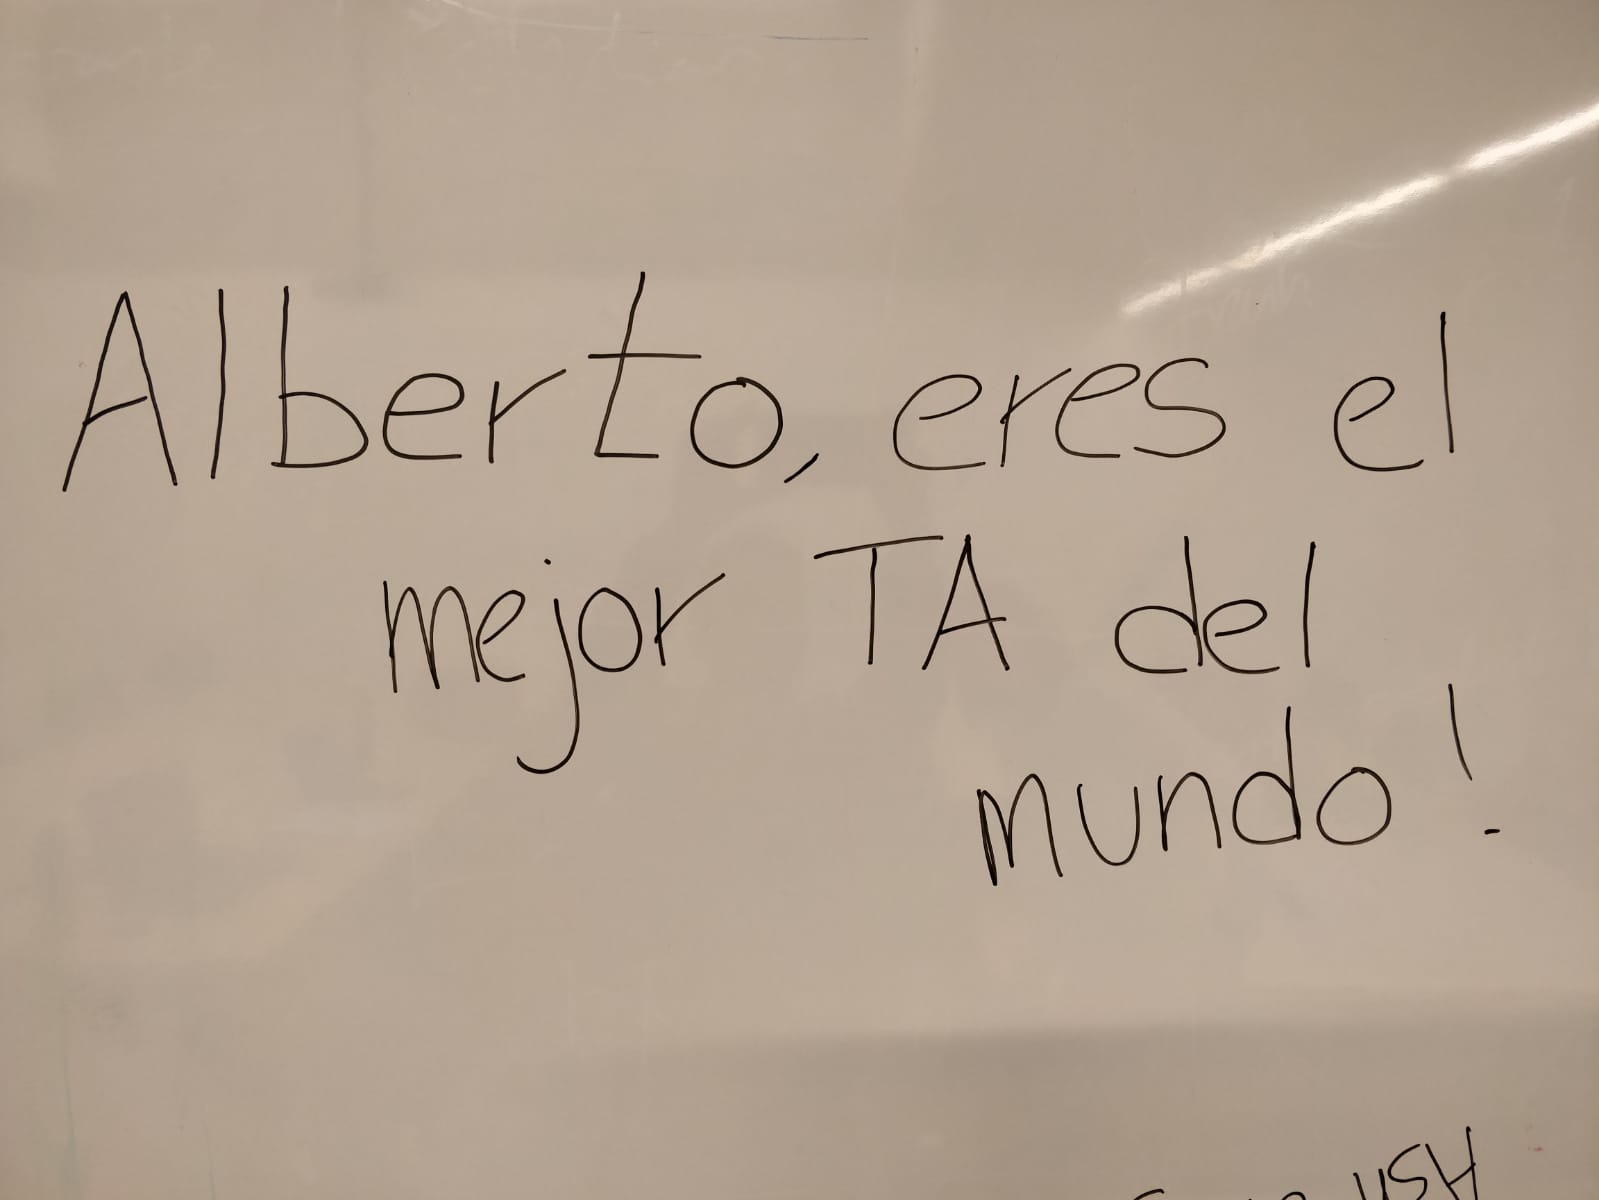 Alberto, eres el
mejor TA del
mundo!